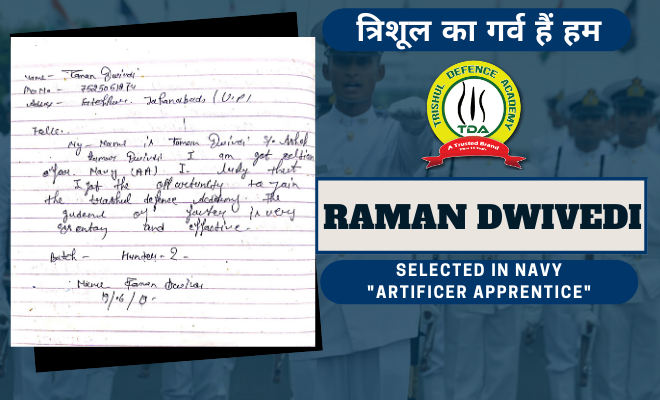 Name - Raman Dwivedi
Mo No - 7525051874
Address - Fatehpur Jafanabads (U.P)
Hello.
My - Name is Raman Dwivedi S/o Ashok
kumar Dwivedi I am got selection
Navy (AA) I lucky that
I got the opportunity to join
the trishul defence academy. The
of faculty is very
and effective.
Batch - Hunter - 2 -
Name Raman Dwivedi
त्रिशूल का गर्व हैं हम
TRISHUL DEFENCE ACADEMY
TDA
A Trusted Brand
RAMAN DWIVEDI
SELECTED IN NAVY
"ARTIFICER APPRENTICE"